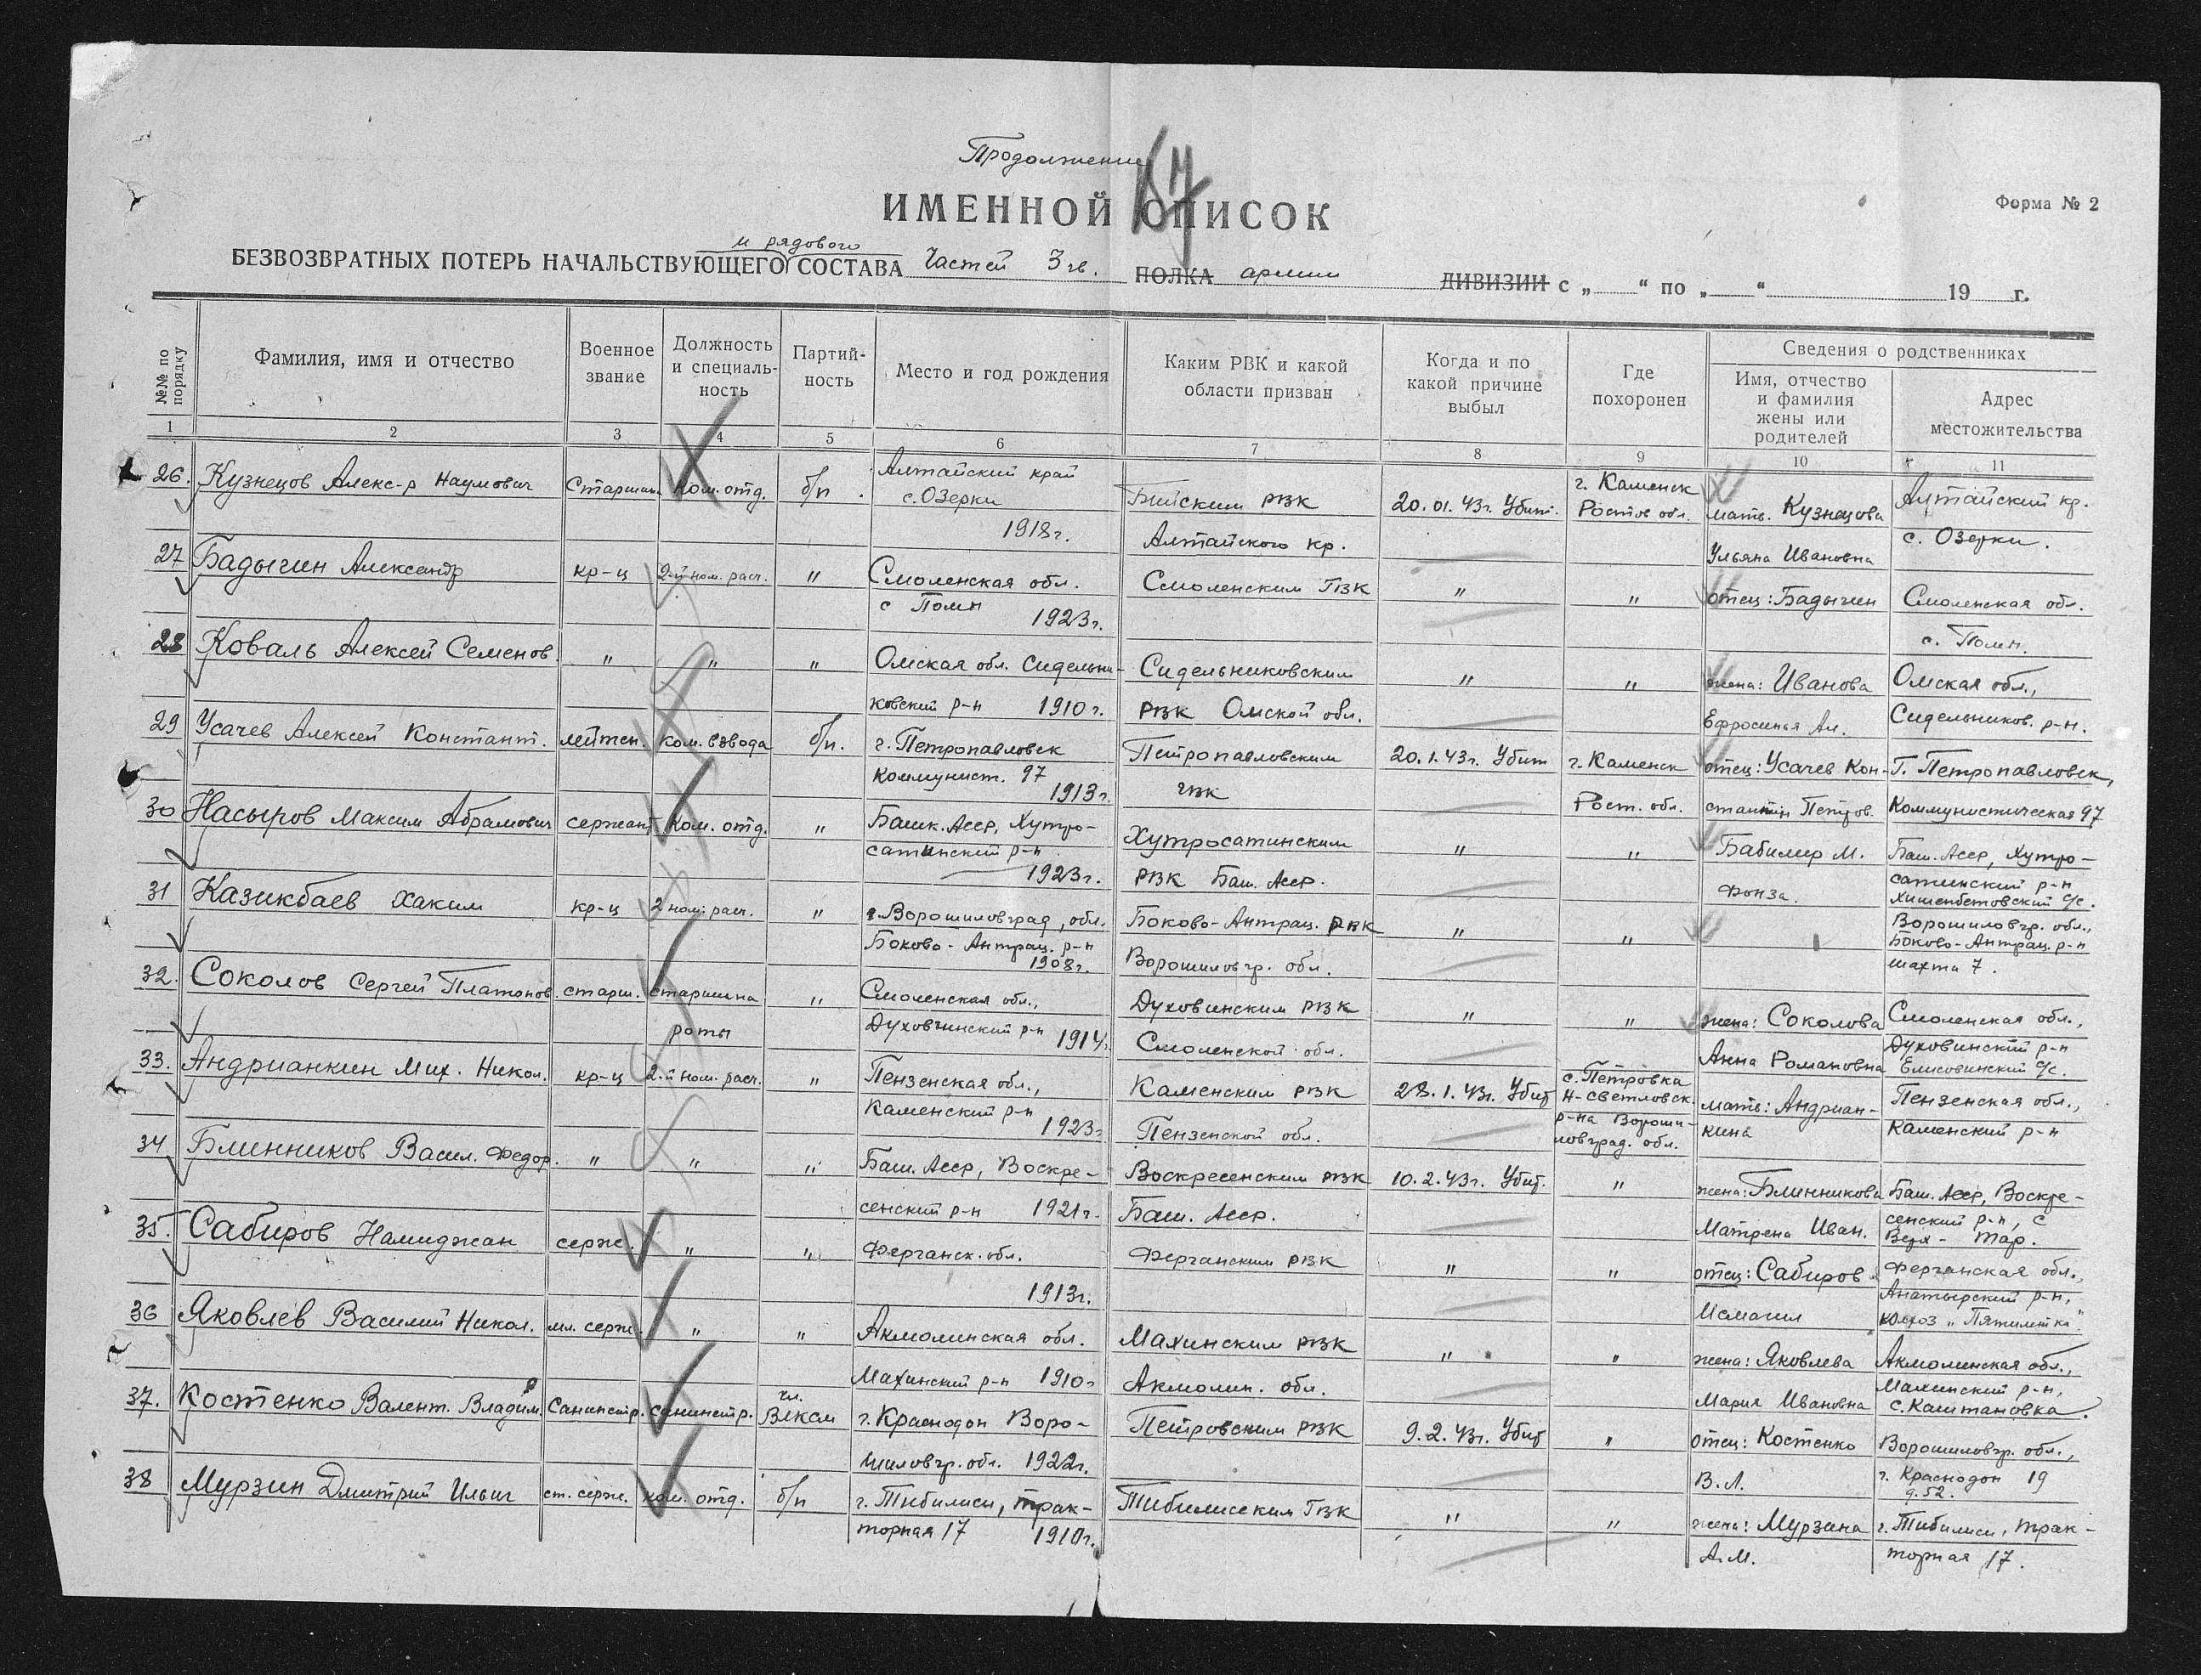 Продолжение
57
ИМЕННОЙ СПИСОК
Форма № 2
и рядового
БЕЗВОЗВРАТНЫХ ПОТЕРЬ НАЧАЛЬСТВУЮЩЕГО СОСТАВА частей 3 гв. ПОЛКА армии ДИВИЗИИ с „ “ по „ “ 19 г.
№№ по порядку
Фамилия, имя и отчество
Военное звание
Должность и специаль-ность
Партий-ность
Место и год рождения
Каким РВК и какой области призван
Когда и по какой причине выбыл
Где похоронен
Сведения о родственниках
Имя, отчество и фамилия жены или родителей
Адрес местожительства
1 2 3 4 5 6 7 8 9 10 11
26. Кузнецов Алекс-р Наумович Старшина Ком. отд. б/п Алтайский край с. Озерки 1918 г. Бийским РВК Алтайского кр. 20.01.43г. Убит. г. Каменск Ростов обл. мать. Кузнецова Ульяна Ивановна Алтайский кр. с. Озерки.
27 Бадыгин Александр кр-ц 2-й ном. расч. " Смоленская обл. с Помн 1923 г. Смоленским ГВК " " отец: Бадыгин Смоленская обл. с. Помн.
28 Коваль Алексей Семенов. " " " Омская обл. Сидельни-ковский р-н 1910 г. Сидельниковским РВК Омской обл. " " жена: Иванова Ефросинья Ал. Омская обл., Сидельников. р-н.
29 Усачев Алексей Константин. лейтен. ком. взвода б/п. г. Петропавловск Коммунист. 97 1913 г. Петропавловским ГВК 20.1.43г. Убит г. Каменск Рост. обл. отец: Усачев Кон-стантин Петров. Г. Петропавловск, Коммунистическая 97
30 Насыров Максим Абрамович сержант Ком. отд. " Башк. Асср, Хутро-сатинский р-н 1923 г. Хутросатинским РВК Баш. Асср. " " Бабилир М. Фонза. Баш. Асср, Хутро-сатинский р-н Хишенбетовский с/с.
31 Казикбаев Хаким кр-ц 2 ном. расч. " г. Ворошиловград, обл. Боково-Антрац. р-н 1908 г. Боково-Антрац. РВК Ворошиловгр. обл. " " Ворошиловгр. обл., Боково-Антрац. р-н шахта 7.
32. Соколов Сергей Платонов. старш. старшина роты " Смоленская обл., Духовчинский р-н 1914 г. Духовинским РВК Смоленской обл. " " жена: Соколова Анна Романовна Смоленская обл., Духовинский р-н Елисовинский с/с.
33. Андрианкин Мих. Никол. кр-ц 2-й ном. расч. " Пензенская обл., Каменский р-н 1923 г Каменским РВК Пензенской обл. 28.1.43г. Убит с. Петровка Н-Светловск. р-на Вороши-ловград. обл. мать: Андриан-кина Пензенская обл., Каменский р-н
34 Блинников Васил. Федор. " " " Баш. Асср, Воскре-сенский р-н 1921 г. Воскресенским РВК Баш. Асср. 10.2.43г. Убит. " жена: Блинникова Матрена Иван. Баш. Асср, Воскре-сенский р-н, с Верх-Тар.
35. Сабиров Намиджан серж. " " Ферганск. обл. 1913 г. Ферганским РВК " " отец: Сабиров Исмагил Ферганская обл., Анатырский р-н, колхоз „Пятилетка".
36 Яковлев Василий Никол. мл. серж. " " Акмолинская обл. Махинский р-н 1910 г Махинским РВК Акмолин. обл. " " жена: Яковлева Мария Ивановна Акмолинская обл., Махинский р-н, с. Каштановка.
37. Костенко Валент. Владим. Санинстр. санинстр. чл. ВЛКСМ г. Краснодон Воро-шиловгр. обл. 1922 г. Петровским РВК 9.2.43г. Убит " отец: Костенко В.Л. Ворошиловгр. обл., г. Краснодон 19 д. 52.
38 Мурзин Дмитрий Ильич ст. серж. ком. отд. б/п г. Тибилиси, трак-торная 17 1910 г. Тибилисским ГВК " " жена: Мурзина А.М. г. Тибилиси, трак-торная 17.